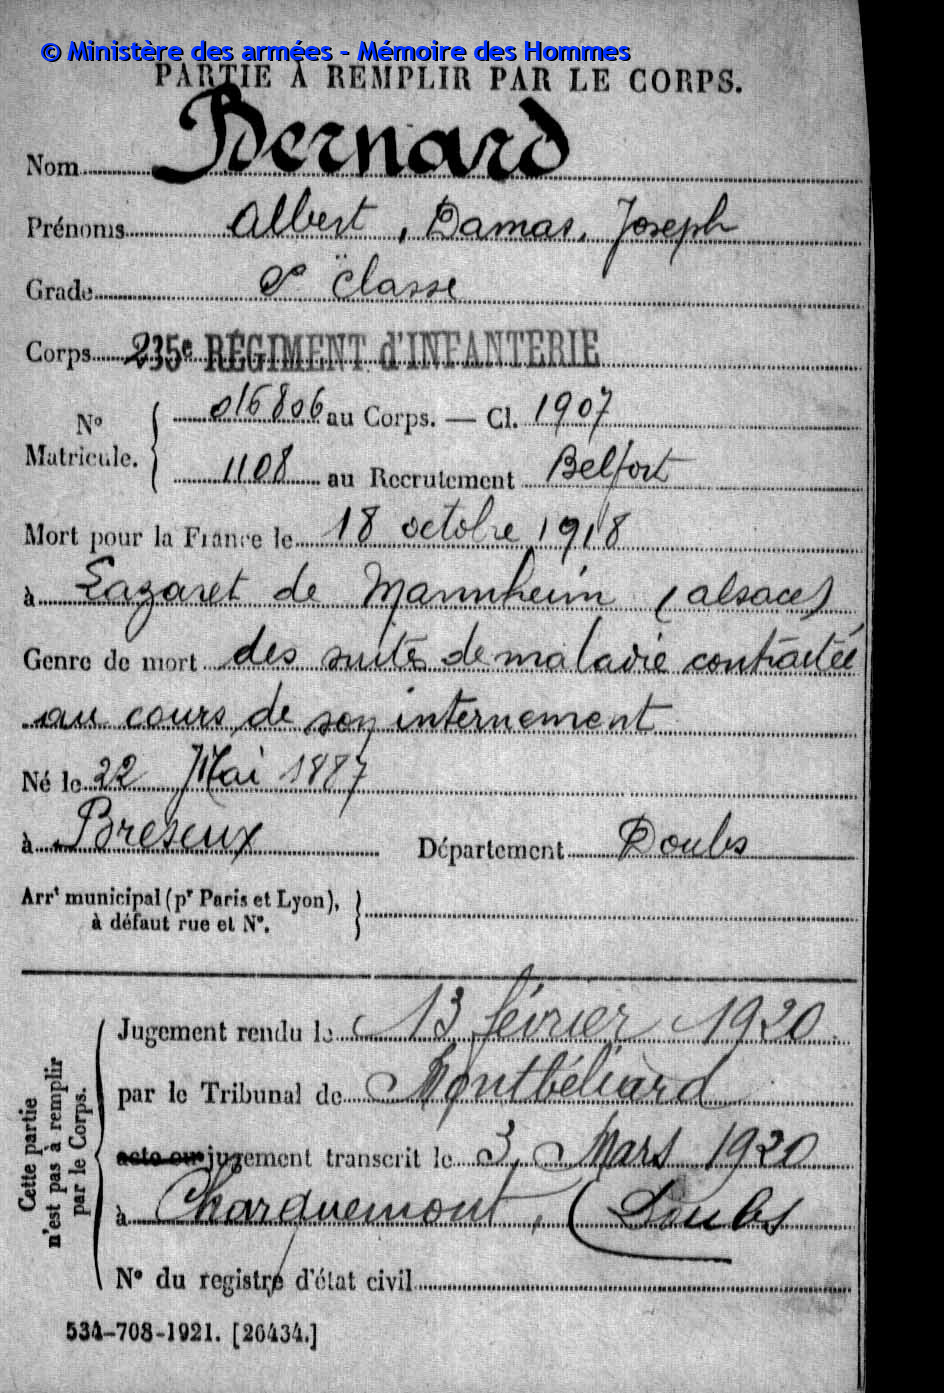 © Ministère des armées - Mémoire des Hommes
PARTIE À REMPLIR PAR LE CORPS.
Nom Bernard
Prénoms Albert, Damas, Joseph
Grade 2e classe
Corps 235e RÉGIMENT d'INFANTERIE
No Matricule. 016806 au Corps. — Cl. 1907
1108 au Recrutement Belfort
Mort pour la France le 18 octobre 1918
à Lazaret de Mannheim (alsace)
Genre de mort des suites de maladie contractée
au cours de son internement
Né le 22 Mai 1887
à Breseux Département Doubs
Arrt municipal (pr Paris et Lyon),
à défaut rue et No.
Cette partie
n'est pas à remplir
par le Corps.
Jugement rendu le 13 février 1920
par le Tribunal de Montbéliard
acte ou jugement transcrit le 3 Mars 1920
à Charquemont, (Doubs
No du registre d'état civil
534-708-1921. [26434.]